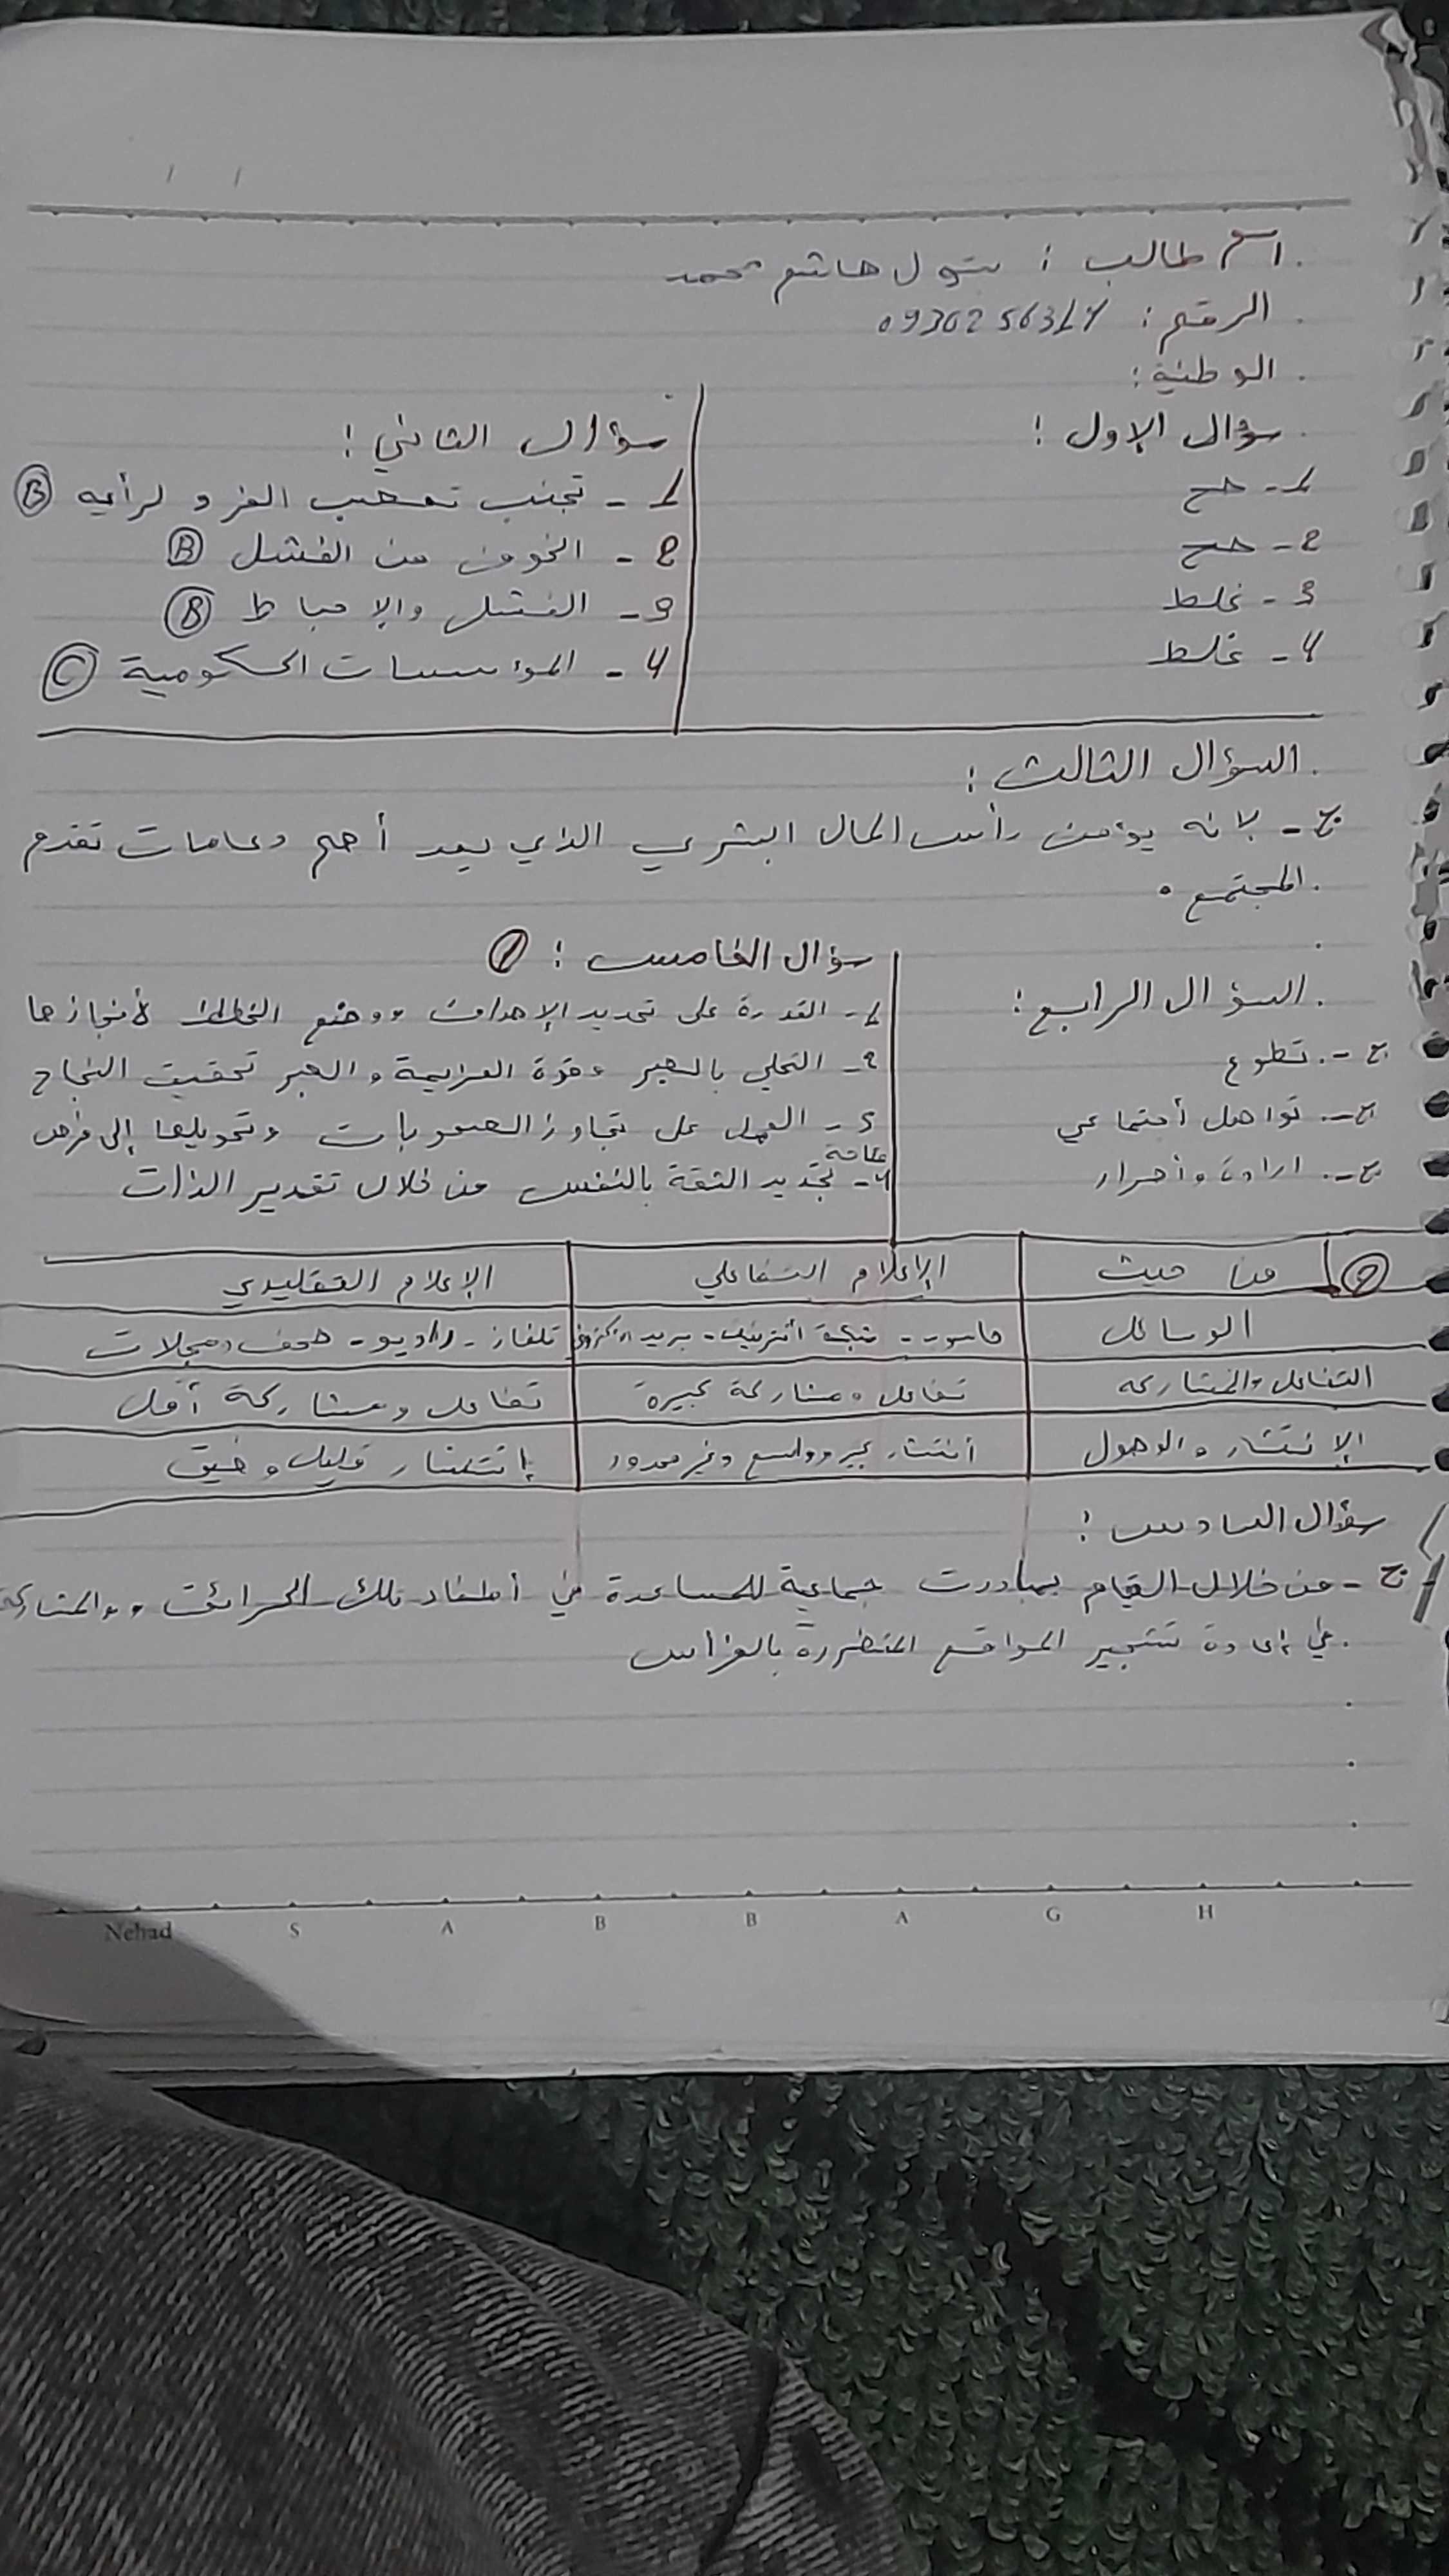 اسم طالب : بتول هاشم محمد
الرقم :
الوطنية :
سؤال الاول :
1- صح
2- صح
3- غلط
4- غلط
سؤال الثاني :
1- تجنب تعصب الفرد لرأيه B
2- الخوف من الفشل B
3- الفشل والإحباط B
4- المؤسسات الحكومية C
السؤال الثالث :
ج- لانه يؤمن رأس المال البشري الذي يعد أهم دعامات تقدم
المجتمع .
السؤال الرابع :
ج-. تطوع
ج-. تواصل أجتماعي
ج-. ارادة وأصرار
سؤال الخامس : 1
1- القدرة على تحديد الإهداف ووضع الخطط لأنجازها
2- التحلي بالصبر وقوة العزيمة والصبر تحقيق النجاح
3- العمل على تجاوز الصعوبات وتحويلها إلى فرص
4- تجديد الثقة بالنفس من خلال تقدير الذات
2 من حيث | الإعلام التفاعلي | الإعلام التقليدي
الوسائل | حاسوب - شبكة أنترنيت - بريد الكتروني | تلفاز - راديو - صحف ومجلات
التفاعل والمشاركه | تفاعل ومشاركة كبيرة | تفاعل ومشاركة أقل
الإنتشار والوصول | أنتشار كبير وواسع وغير محدود | إنتشار قليل وضيق
سؤال السادس :
ج- من خلال القيام بمبادرت جماعية للمساعدة في أطفاء تلك الحرائق ووالمشاركة
في إعادة تشجير المواقع المتظررة بالغراس
Nehad S A B B A G H